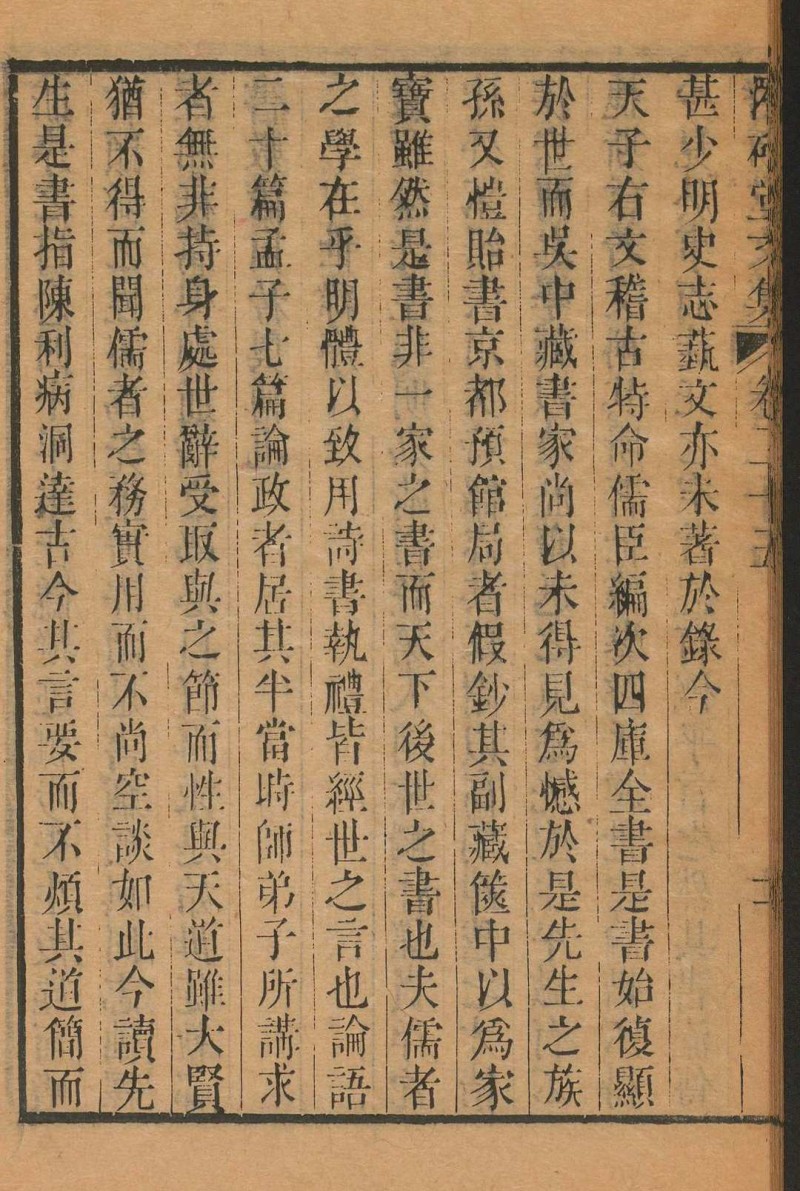 潛硏堂文集 卷二十五 二
甚少明史志蓺文亦未著於錄今
天子右文稽古特命儒臣編次四庫全書是書始復顯
於世而吳中藏書家尚以未得見爲憾於是先生之族
孫又愷貽書京都預館局者假鈔其副藏篋中以爲家
寶雖然是書非一家之書而天下後世之書也夫儒者
之學在乎明體以致用詩書執禮皆經世之言也論語
二十篇孟子七篇論政者居其半當時師弟子所講求
者無非持身處世辭受取與之節而性與天道雖大賢
猶不得而聞儒者之務實用而不尚空談如此今讀先
生是書指陳利病洞達古今其言要而不煩其道簡而